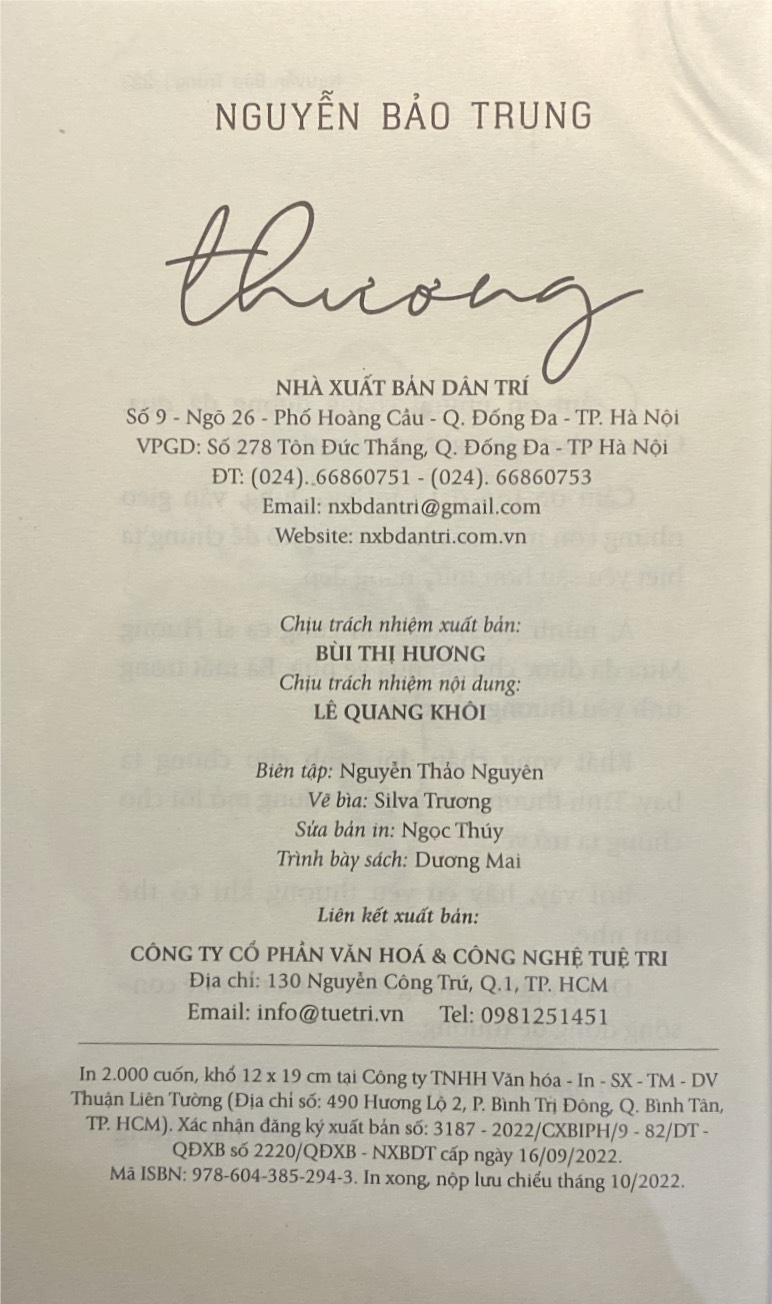 NGUYỄN BẢO TRUNG
thương
NHÀ XUẤT BẢN DÂN TRÍ
Số 9 - Ngõ 26 - Phố Hoàng Cầu - Q. Đống Đa - TP. Hà Nội
VPGD: Số 278 Tôn Đức Thắng, Q. Đống Đa - TP Hà Nội
ĐT: (024). 66860751 - (024). 66860753
Email: nxbdantri@gmail.com
Website: nxbdantri.com.vn
Chịu trách nhiệm xuất bản:
BÙI THỊ HƯƠNG
Chịu trách nhiệm nội dung:
LÊ QUANG KHÔI
Biên tập: Nguyễn Thảo Nguyên
Vẽ bìa: Silva Trương
Sửa bản in: Ngọc Thúy
Trình bày sách: Dương Mai
Liên kết xuất bản:
CÔNG TY CỔ PHẦN VĂN HOÁ & CÔNG NGHỆ TUỆ TRI
Địa chỉ: 130 Nguyễn Công Trứ, Q.1, TP. HCM
Email: info@tuetri.vn Tel: 0981251451
In 2.000 cuốn, khổ 12 x 19 cm tại Công ty TNHH Văn hóa - In - SX - TM - DV
Thuận Liên Tường (Địa chỉ số: 490 Hương Lộ 2, P. Bình Trị Đông, Q. Bình Tân,
TP. HCM). Xác nhận đăng ký xuất bản số: 3187 - 2022/CXBIPH/9 - 82/DT -
QĐXB số 2220/QĐXB - NXBDT cấp ngày 16/09/2022.
Mã ISBN: 978-604-385-294-3. In xong, nộp lưu chiểu tháng 10/2022.